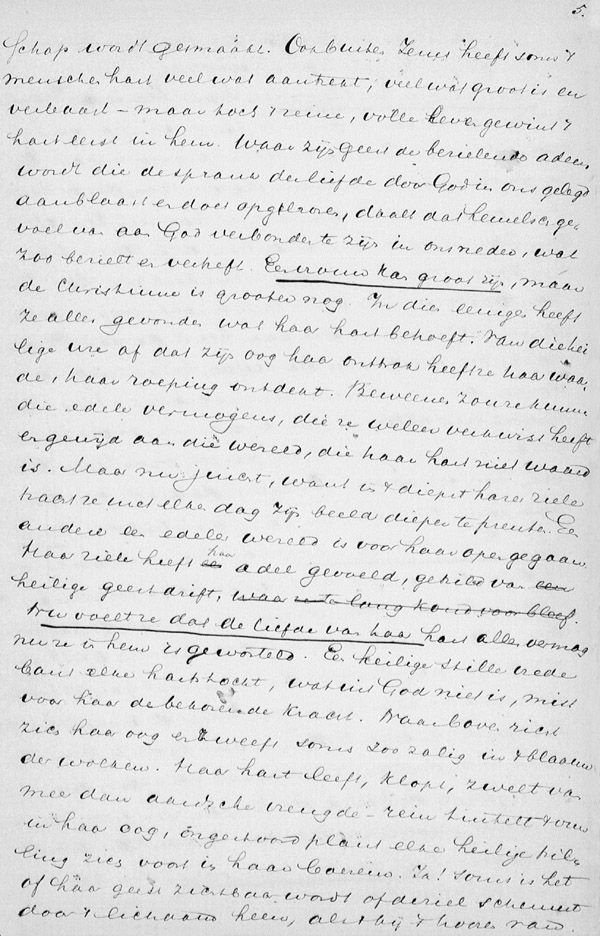 5.
schap wordt gesmaakt. Ook buiten Jezus heeft soms 't
menschenhart veel wat aantrekt, veel wat groot is en
verbaast – maar toch 't reine, volle leven gewint 't
hart eerst in hem. Waar zijn geest de bezielende adem
wordt die de sprank der liefde door God in ons gelegd
aanblaast en doet opgloren, daalt dat hemelsch ge-
voel van aan God verbonden te zijn in ons neder, wat
zoo bezielt en verheft. Een vrouw kan groot zijn, maar
de Christinne is grooter nog. In dien eenigen heeft
ze alles gevonden wat haar hart behoeft. Van die hei
lige ure af dat zijn oog haar ontrok heeft ze haar waar
de, haar roeping ontdekt. Beweenen zou ze kunnen
die edele vermogens, die ze weleer verkwist heeft
en gewijd aan die wereld, die haar hart niet waard
is. Maar nu juicht, want in 't diepst harer ziele
tracht ze met elken dag zijn beeld dieper te prenten. Een
andere een edeler wereld is voor haar open gegaan.
Haar ziele heeft een haar adel gevoeld, getild van een
heilige geestdrift, waar ze te lang koud voor bleef.
Nu voelt ze dat de liefde van haar hart alles vermag
nu ze in hem is geworteld. Een heilige stille vrede
bant elke hartstocht, wat uit God niet is, mist
voor haar de bekorende kracht. Naar boven richt
zich haar oog en zweeft soms zoo zalig in 't blaauw
der wolken. Haar hart leeft, klopt, zwelt van
meer dan aardsche vreugde – rein tintelt 't vuur
in haar oog, ongestoord plant elke heilige tril-
ling zich voort in haar boezem. Ja! soms is het
of haar geest zichtbaar wordt of de ziel schemert
door 't lichaam heen, als zij 't hooren van